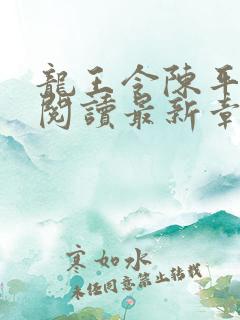 龍王令陳平
閱讀最新章
寒如水
未經同意禁止轉載